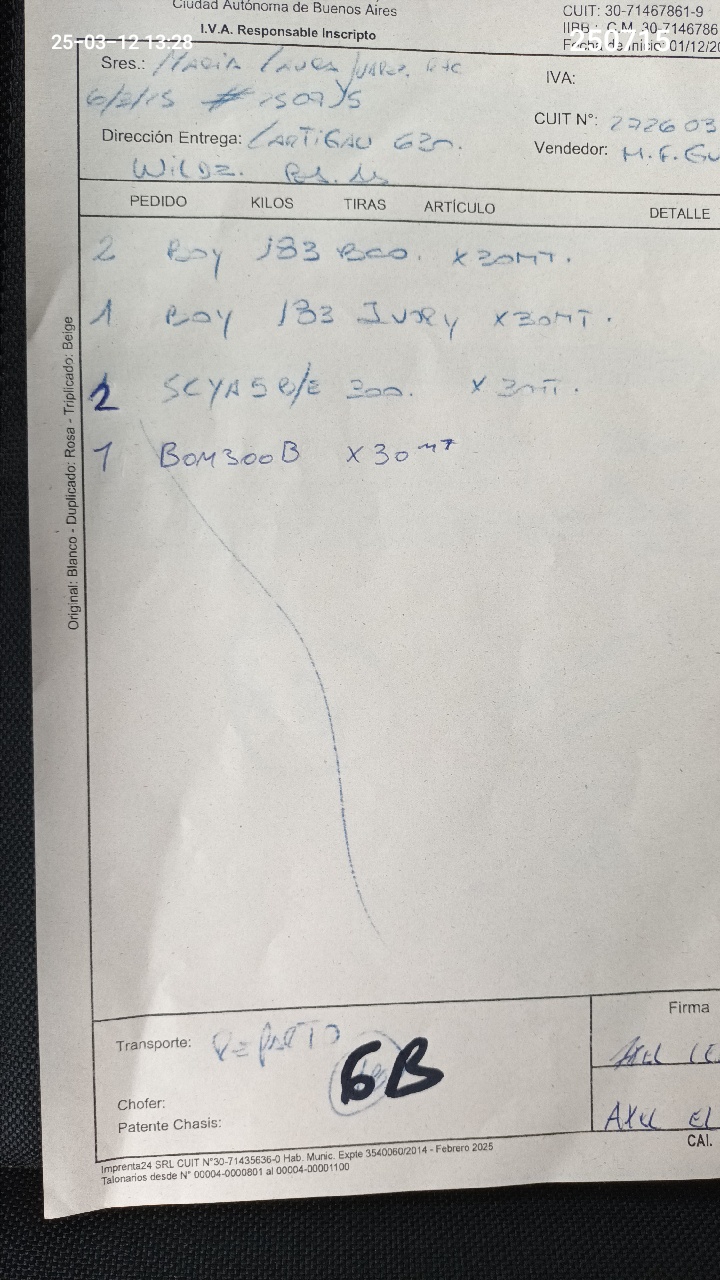 Ciudad Autónoma de Buenos Aires
I.V.A. Responsable Inscripto
CUIT: 30-71467861-9
IIBB.: C.M. 30-7146786
Fecha de Inicio 01/12/20
25-03-12 13:28
250715
Sres.: Maria Laura Juarez
#
IVA:
CUIT N°: 272603
Dirección Entrega: 630.
Vendedor: M.F. Gu
Wilde. Bs. As
PEDIDO KILOS TIRAS ARTÍCULO DETALLE
2 Boy 133 Bco. x 30MT.
1 Boy 133 Ivory x 30MT.
2 300. x 30MT.
1 BOM300B x 30MT
Original: Blanco - Duplicado: Rosa - Triplicado: Beige
Transporte: REPARTO
6B
Chofer:
Patente Chasis:
Firma
Axel
Axel El
CAI.
Imprenta24 SRL CUIT N°30-71435636-0 Hab. Munic. Expte 3540060/2014 - Febrero 2025
Talonarios desde N° 00004-0000801 al 00004-00001100